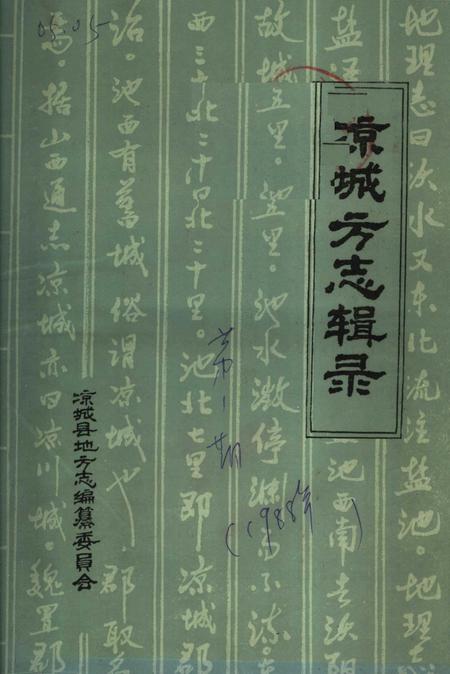 凉城方志辑录
地理志曰沃水又东北流注盐池。地理志
盐池
池西南去沃阳
故城五里。
里。池水澂停渊而不流。东
西三十北二十四北二十里。池北七里即凉城郡
治。池西有旧城俗谓凉城也。郡取名
焉。括山西通志凉城亦曰凉川城。魏置郡
第1期
(1988年)
凉城县地方志编纂委员会
05.05